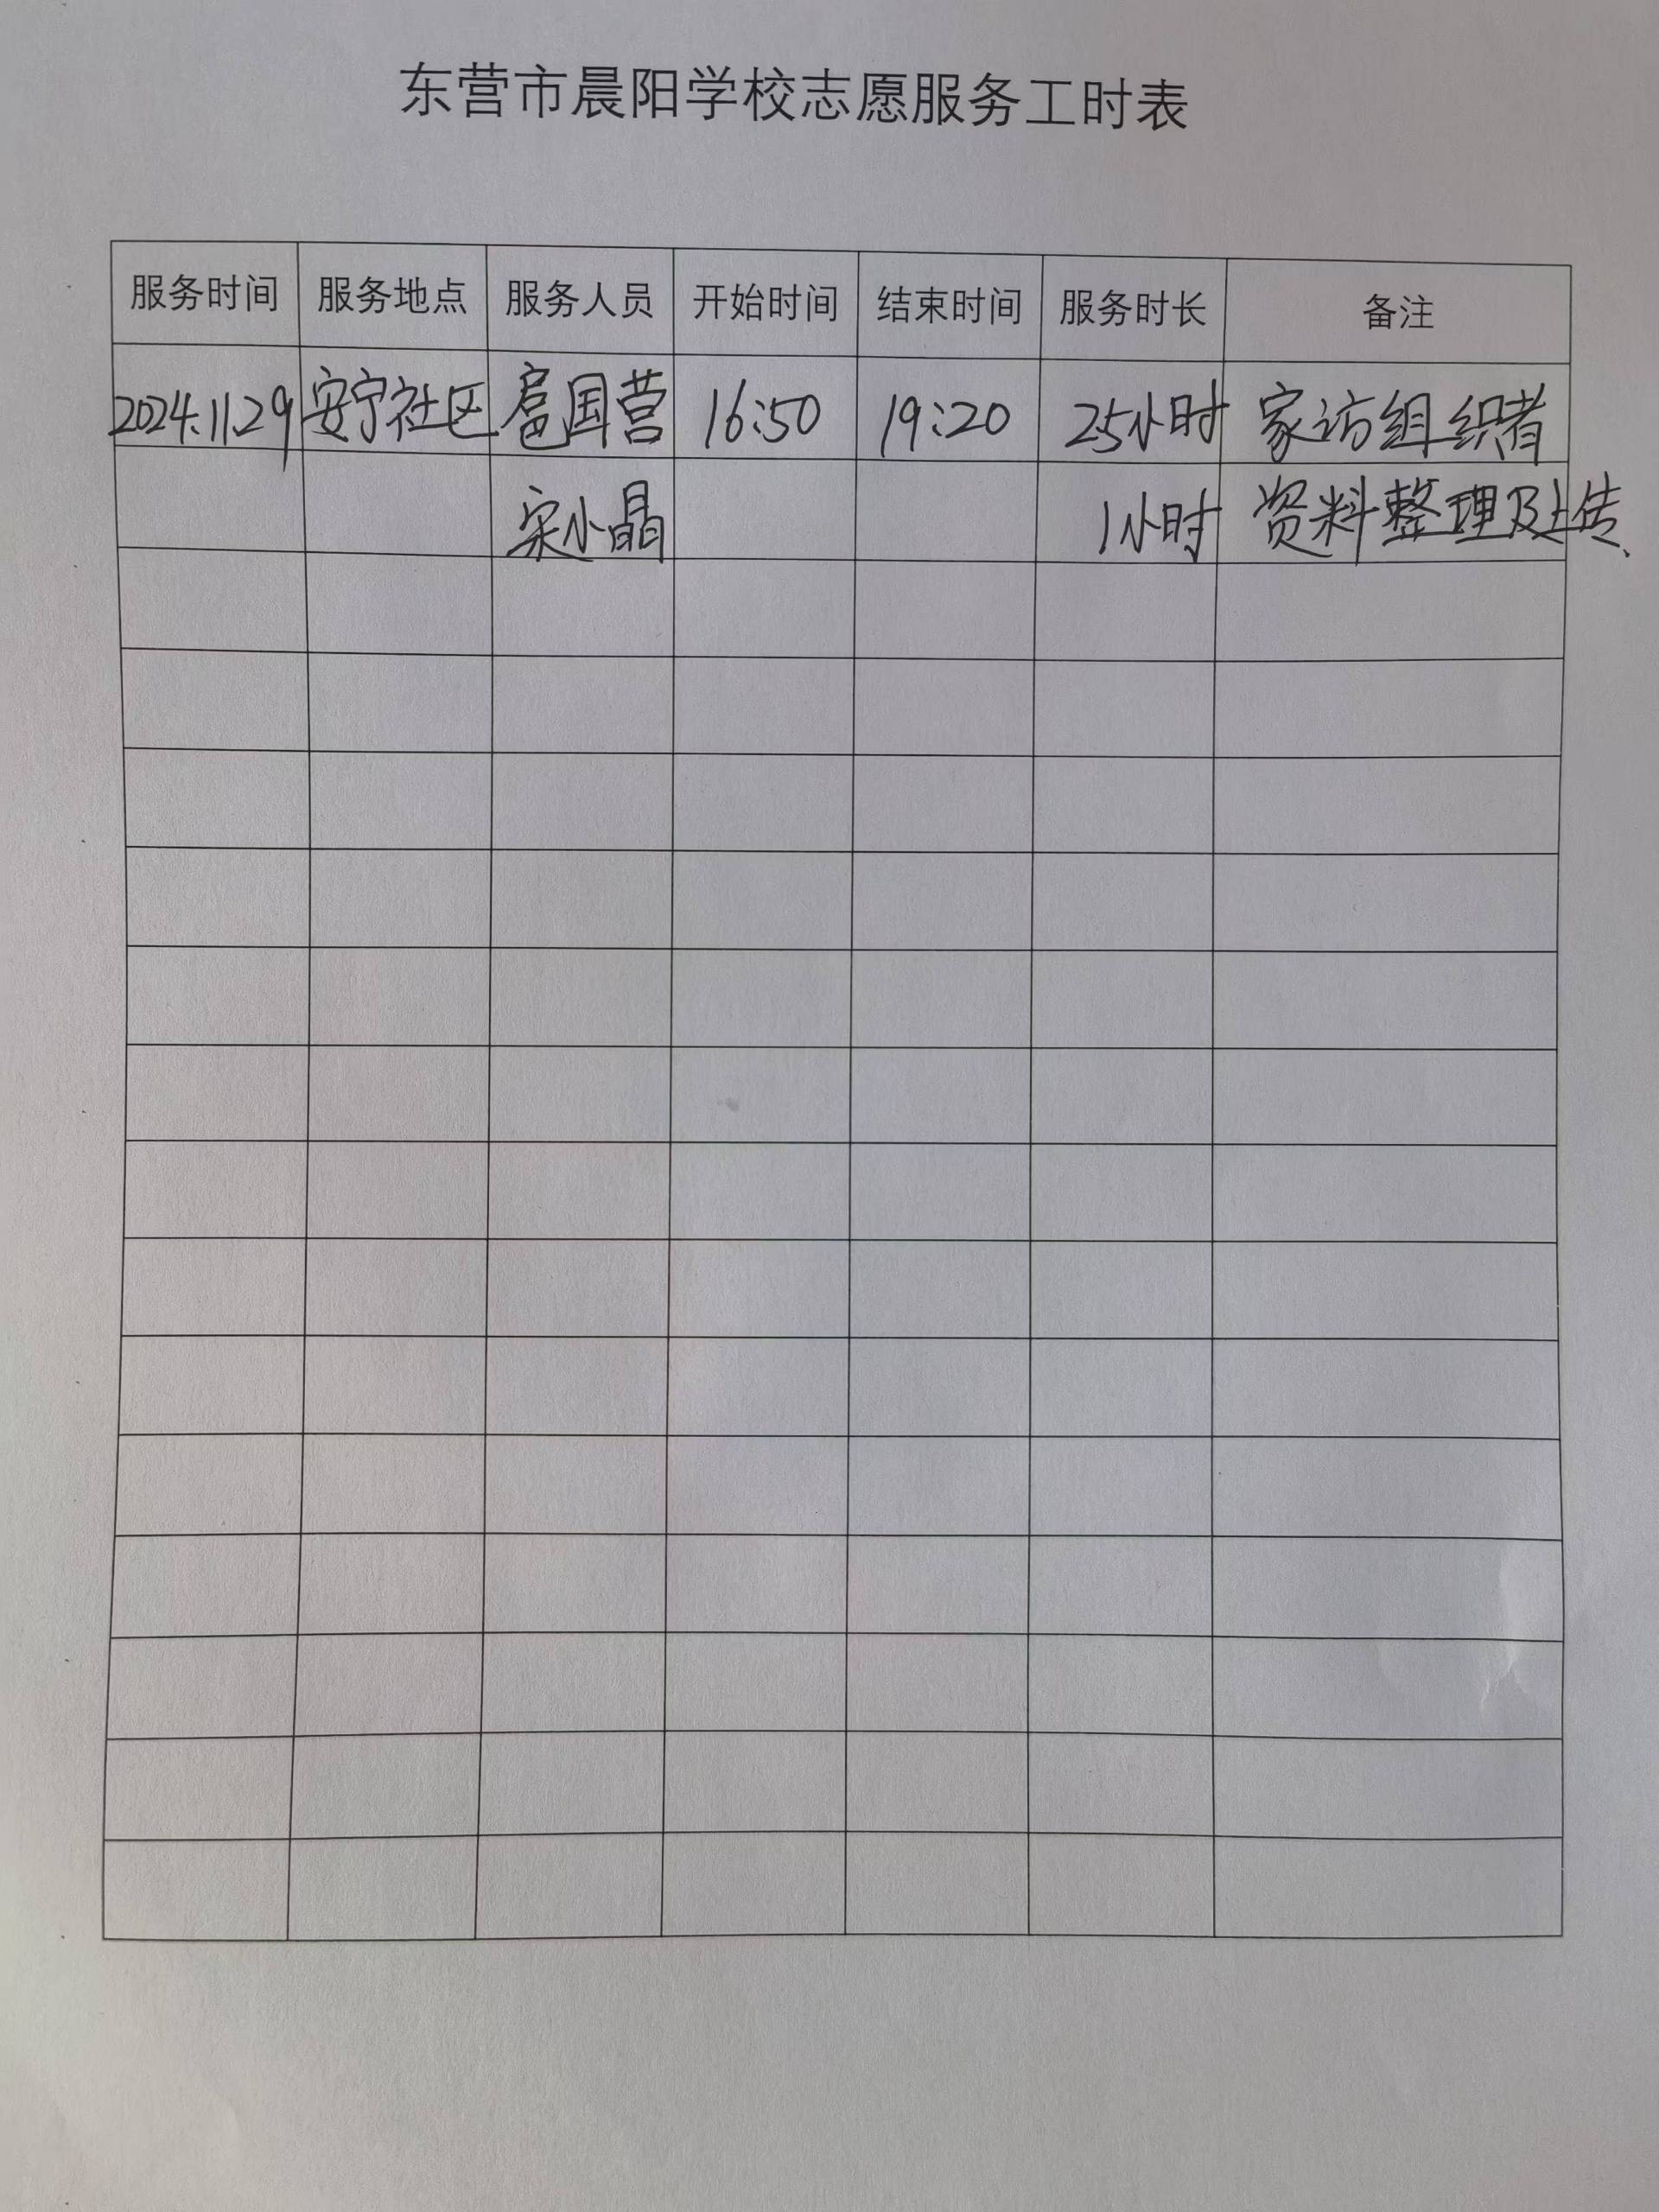 东营市晨阳学校志愿服务工时表
服务时间 服务地点 服务人员 开始时间 结束时间 服务时长 备注
2024.11.29 安宁社区 扈国营 16:50 19:20 2.5小时 家访组织者
宋小晶 1小时 资料整理及上传